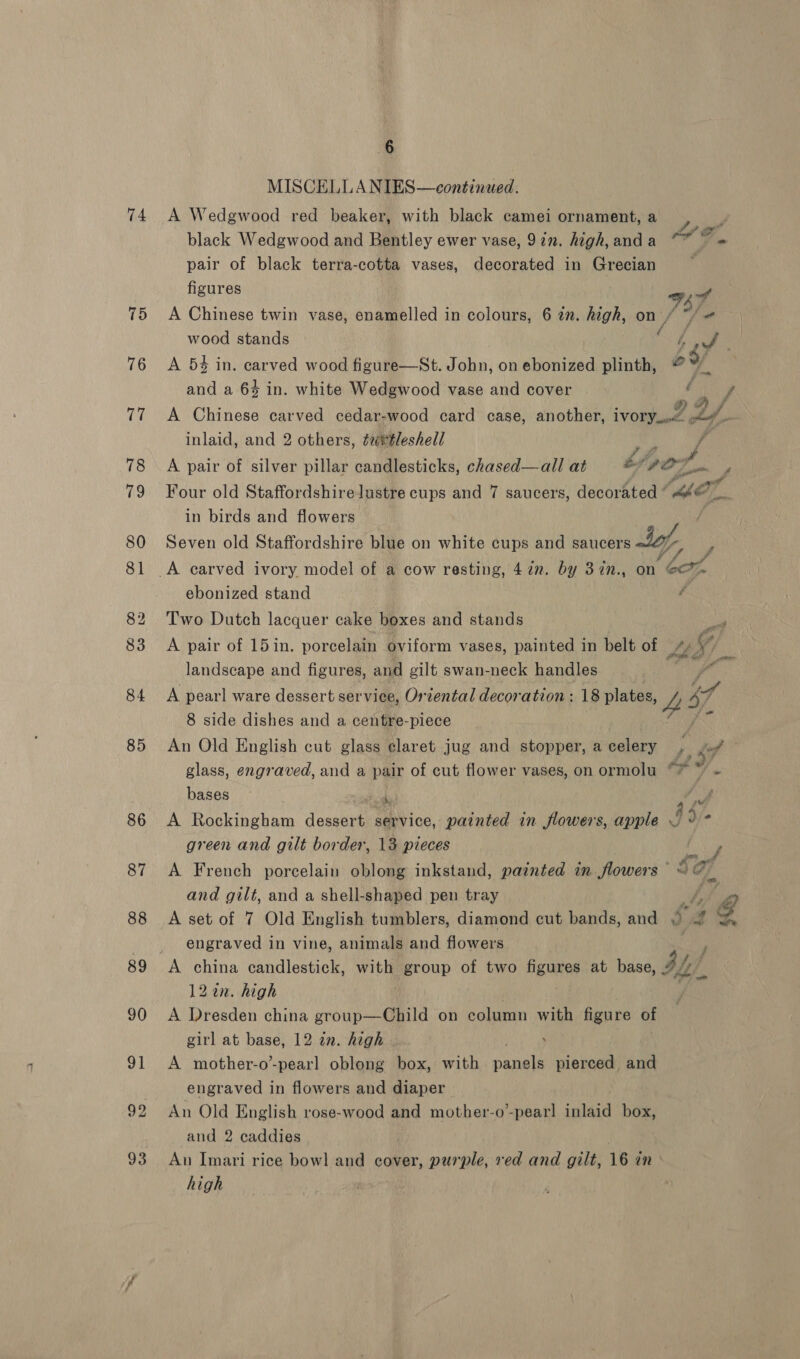 6
MISCELLANIES—continued.
74 A Wedgwood red beaker, with black camei ornament, a
black Wedgwood and Bentley ewer vase, 9 in. high, and a
pair of black terra-cotta vases, decorated in Grecian
figures
75 A Chinese twin vase, enamelled in colours, 6 in. high, on
wood stands
76 A 5½ in. carved wood figure—St. John, on ebonized plinth,
and a 6½ in. white Wedgwood vase and cover
77 A Chinese carved cedar-wood card case, another, ivory
inlaid, and 2 others, turtleshell
78 A pair of silver pillar candlesticks, chased—all at
79 Four old Staffordshire lustre cups and 7 saucers, decorated
in birds and flowers
80 Seven old Staffordshire blue on white cups and saucers
81 A carved ivory model of a cow resting, 4 in. by 3 in., on
ebonized stand
82 Two Dutch lacquer cake boxes and stands
83 A pair of 15 in. porcelain oviform vases, painted in belt of
landscape and figures, and gilt swan-neck handles
84 A pearl ware dessert service, Oriental decoration; 18 plates,
8 side dishes and a centre-piece
85 An Old English cut glass claret jug and stopper, a celery
glass, engraved, and a pair of cut flower vases, on ormolu
bases
86 A Rockingham dessert service, painted in flowers, apple
green and gilt border, 13 pieces
87 A French porcelain oblong inkstand, painted in flowers
and gilt, and a shell-shaped pen tray
88 A set of 7 Old English tumblers, diamond cut bands, and
engraved in vine, animals and flowers
89 A china candlestick, with group of two figures at base,
12 in. high
90 A Dresden china group—Child on column with figure of
girl at base, 12 in. high
91 A mother-o'-pearl oblong box, with panels pierced and
engraved in flowers and diaper
92 An Old English rose-wood and mother-o'-pearl inlaid box,
and 2 caddies
93 An Imari rice bowl and cover, purple, red and gilt, 16 in
high